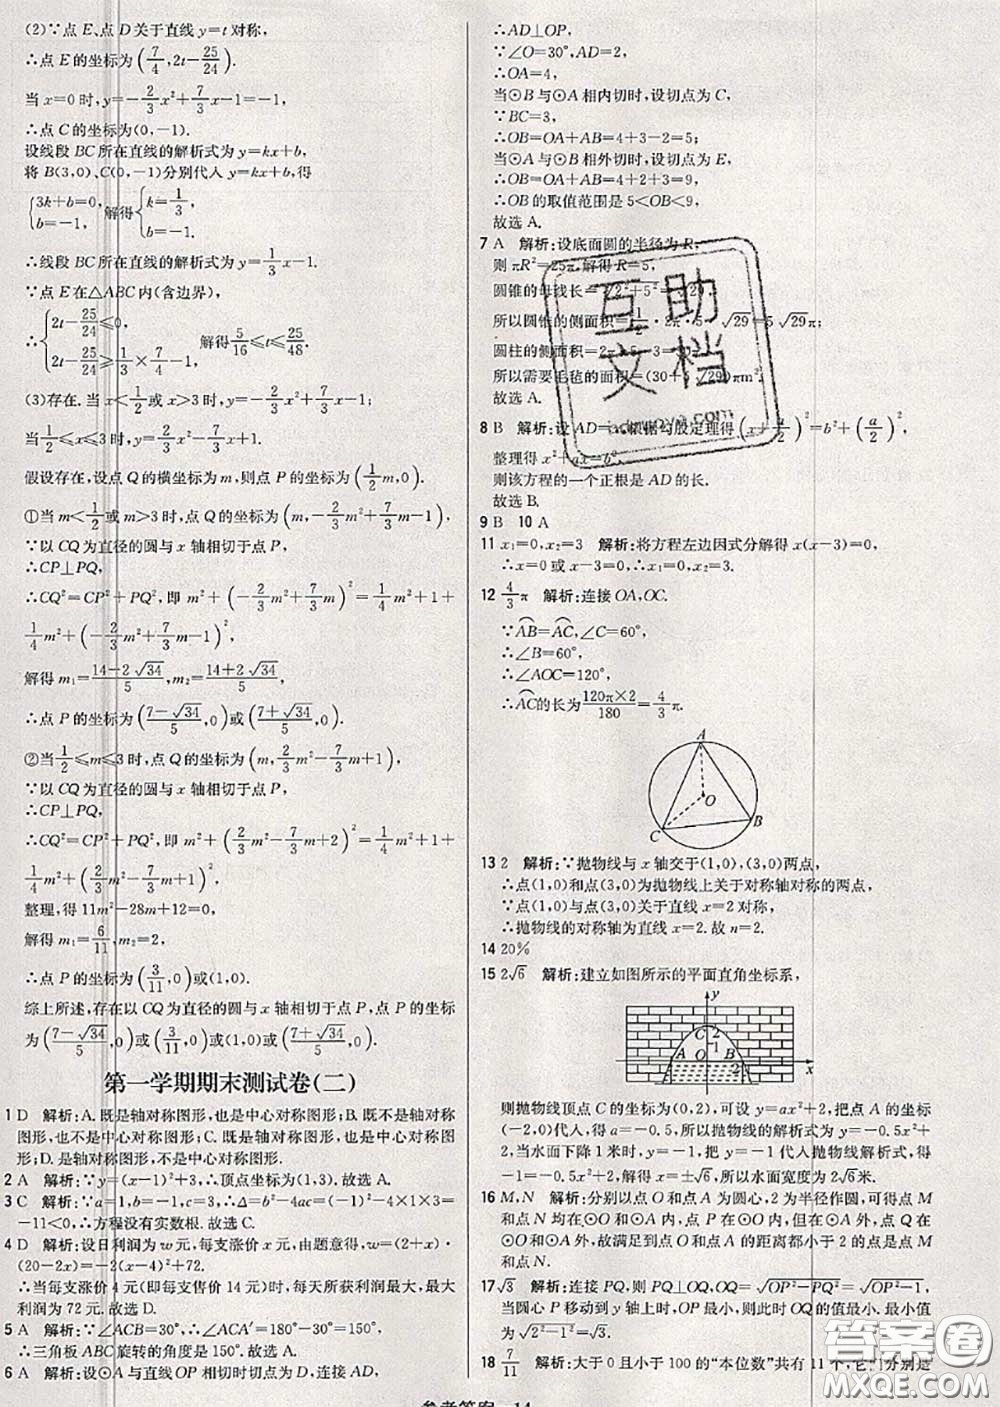 (2)∵点 E、点 D 关于直线 y=t 对称,
∴点 E 的坐标为(7/4, 2t-25/24).
当 x=0 时,y=-2/3x²+7/3x-1=-1,
∴点 C 的坐标为(0,-1).
设线段 BC 所在直线的解析式为 y=kx+b,
将 B(3,0)、C(0,-1)分别代入 y=kx+b,得
{3k+b=0, b=-1, 解得{k=1/3, b=-1.
∴线段 BC 所在直线的解析式为 y=1/3x-1.
∵点 E 在△ABC 内(含边界),
∴{2t-25/24≤0, 2t-25/24≥1/3×7/4-1, 解得5/16≤t≤25/48.
(3)存在.当 x<1/2或 x>3 时,y=-2/3x²+7/3x-1;
当1/2≤x≤3 时,y=2/3x²-7/3x+1.
假设存在,设点 Q 的横坐标为 m,则点 P 的坐标为(1/2m,0).
①当 m<1/2或 m>3 时,点 Q 的坐标为(m,-2/3m²+7/3m-1),
∵以 CQ 为直径的圆与 x 轴相切于点 P,
∴CP⊥PQ,
∴CQ²=CP²+PQ²,即 m²+(-2/3m²+7/3m)²=1/4m²+1+
1/4m²+(-2/3m²+7/3m-1)²,
解得 m₁=(14-2√34)/5,m₂=(14+2√34)/5,
∴点 P 的坐标为((7-√34)/5,0)或((7+√34)/5,0).
②当1/2≤m≤3 时,点 Q 的坐标为(m,2/3m²-7/3m+1),
∵以 CQ 为直径的圆与 x 轴相切于点 P,
∴CP⊥PQ,
∴CQ²=CP²+PQ²,即 m²+(2/3m²-7/3m+2)²=1/4m²+1+
1/4m²+(2/3m²-7/3m+1)²,
整理,得 11m²-28m+12=0,
解得 m₁=6/11,m₂=2,
∴点 P 的坐标为(3/11,0)或(1,0).
综上所述,存在以 CQ 为直径的圆与 x 轴相切于点 P,点 P 的坐标
为((7-√34)/5,0)或(3/11,0)或(1,0)或((7+√34)/5,0).
第一学期期末测试卷(二)
1 D 解析:A.既是轴对称图形,也是中心对称图形;B.既不是轴对称
图形,也不是中心对称图形;C.既是轴对称图形,也是中心对称图
形;D.是轴对称图形,不是中心对称图形.
2 A 解析:∵y=(x-1)²+3,∴顶点坐标为(1,3).故选 A.
3 C 解析:∵a=1,b=-1,c=3,∴Δ=b²-4ac=(-1)²-4×1×3=
-11<0,∴方程没有实数根.故选 C.
4 D 解析:设日利润为 w 元,每支涨价 x 元,由题意得,w=(2+x)·
(20-2x)=-2(x-4)²+72.
∴当每支涨价 4 元(即每支售价 14 元)时,每天所获利润最大,最大
利润为 72 元.故选 D.
5 A 解析:∵∠ACB=30°,∴∠ACA′=180°-30°=150°,
∴三角板 ABC 旋转的角度是 150°.故选 A.
6 A 解析:设⊙A 与直线 OP 相切时切点为 D,连接 AD,
∴AD⊥OP,
∵∠O=30°,AD=2,
∴OA=4,
当⊙B 与⊙A 相内切时,设切点为 C,
∵BC=3,
∴OB=OA+AB=4+3-2=5,
当⊙A 与⊙B 相外切时,设切点为 E,
∴OB=OA+AB=4+2+3=9,
∴OB 的取值范围是 5<OB<9,
故选 A.
7 A 解析:设底面圆的半径为 R,
则 πR²=25π,解得 R=5,
圆锥的母线长=√2²+5²=√29,
所以圆锥的侧面积=1/2·2π·5·√29=5√29π;
圆柱的侧面积=2π·5·3=30π,
所以需要毛毡的面积=(30+5√29)πm².
故选 A.
8 B 解析:设 AD=x,根据勾股定理得(x+a/2)²=b²+(a/2)²,
整理得 x²+ax=b²,
则该方程的一个正根是 AD 的长.
故选 B.
9 B 10 A
11 x₁=0,x₂=3 解析:将方程左边因式分解得 x(x-3)=0,
∴x=0 或 x-3=0,∴x₁=0,x₂=3.
12 4/3π 解析:连接 OA,OC.
∵AB=AC,∠C=60°,
∴∠B=60°,
∴∠AOC=120°,
∴AC的长为120π×2/180=4/3π.
A
O
C
B
13 2 解析:∵抛物线与 x 轴交于(1,0),(3,0)两点,
∴点(1,0)和点(3,0)为抛物线上关于对称轴对称的两点,
∵点(1,0)与点(3,0)关于直线 x=2 对称,
∴抛物线的对称轴为直线 x=2.故 n=2.
14 20%
15 2√6 解析:建立如图所示的平面直角坐标系,
y
C 2
1
A O B
2 x
则抛物线顶点 C 的坐标为(0,2),可设 y=ax²+2,把点 A 的坐标
(-2,0)代入,得 a=-0.5,所以抛物线的解析式为 y=-0.5x²+
2,当水面下降 1 米时,y=-1,把 y=-1 代入抛物线解析式,得
-1=-0.5x²+2,解得 x=±√6,所以水面宽度为 2√6米.
16 M,N 解析:分别以点 O 和点 A 为圆心,2 为半径作圆,可得点 M
和点 N 均在⊙O 和⊙A 内,点 P 在⊙O 内但在⊙A 外,点 Q 在
⊙O 外,故满足到点 O 和点 A 的距离都小于 2 的点为点 M
和点 N.
17 √3 解析:连接 PQ,则 PQ⊥OQ,OQ=√OP²-PQ²=√OP²-1,
当圆心 P 移动到 y 轴上时,OP 最小,则此时 OQ 的值最小.最小值为
√2²-1²=√3.
18 7/11 解析:大于 0 且小于 100 的“本位数”共有 11 个,它们分别是
参考答案 14
互助
文档
答案圈
MXQE.COM